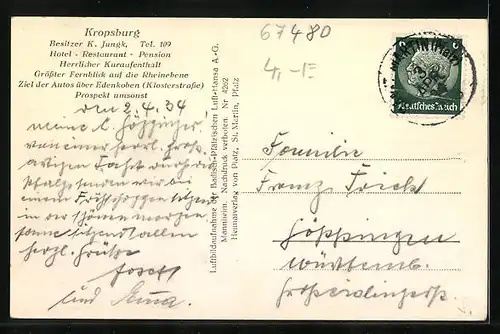 Kropsburg
Besitzer K. Jungk. Tel. 109
Hotel - Restaurant - Pension
Herrlicher Kuraufenthalt
Größter Fernblick auf die Rheinebene
Ziel der Autos über Edenkoben (Klosterstraße)
Prospekt umsonst
den 2.4.34
meine l. Göppinger
von einer herrl. groß
artigen Fahrt durch die
Pfalz senden wir bei
einem Frühschoppen sitzend
in der schönen Morgen
sonne sitzend allen
herzl. Grüße
Josef
und Anna.
Luftbildaufnahme der Badisch-Pfälzischen Luft-Hansa A.-G.
Mannheim. Nachdruck verboten. Nr. 4262
Heumannverlag von Platz, St. Martin, Pfalz
67480
Familie
Franz Frick
Göppingen
Württemb.
6
Deutsches Reich